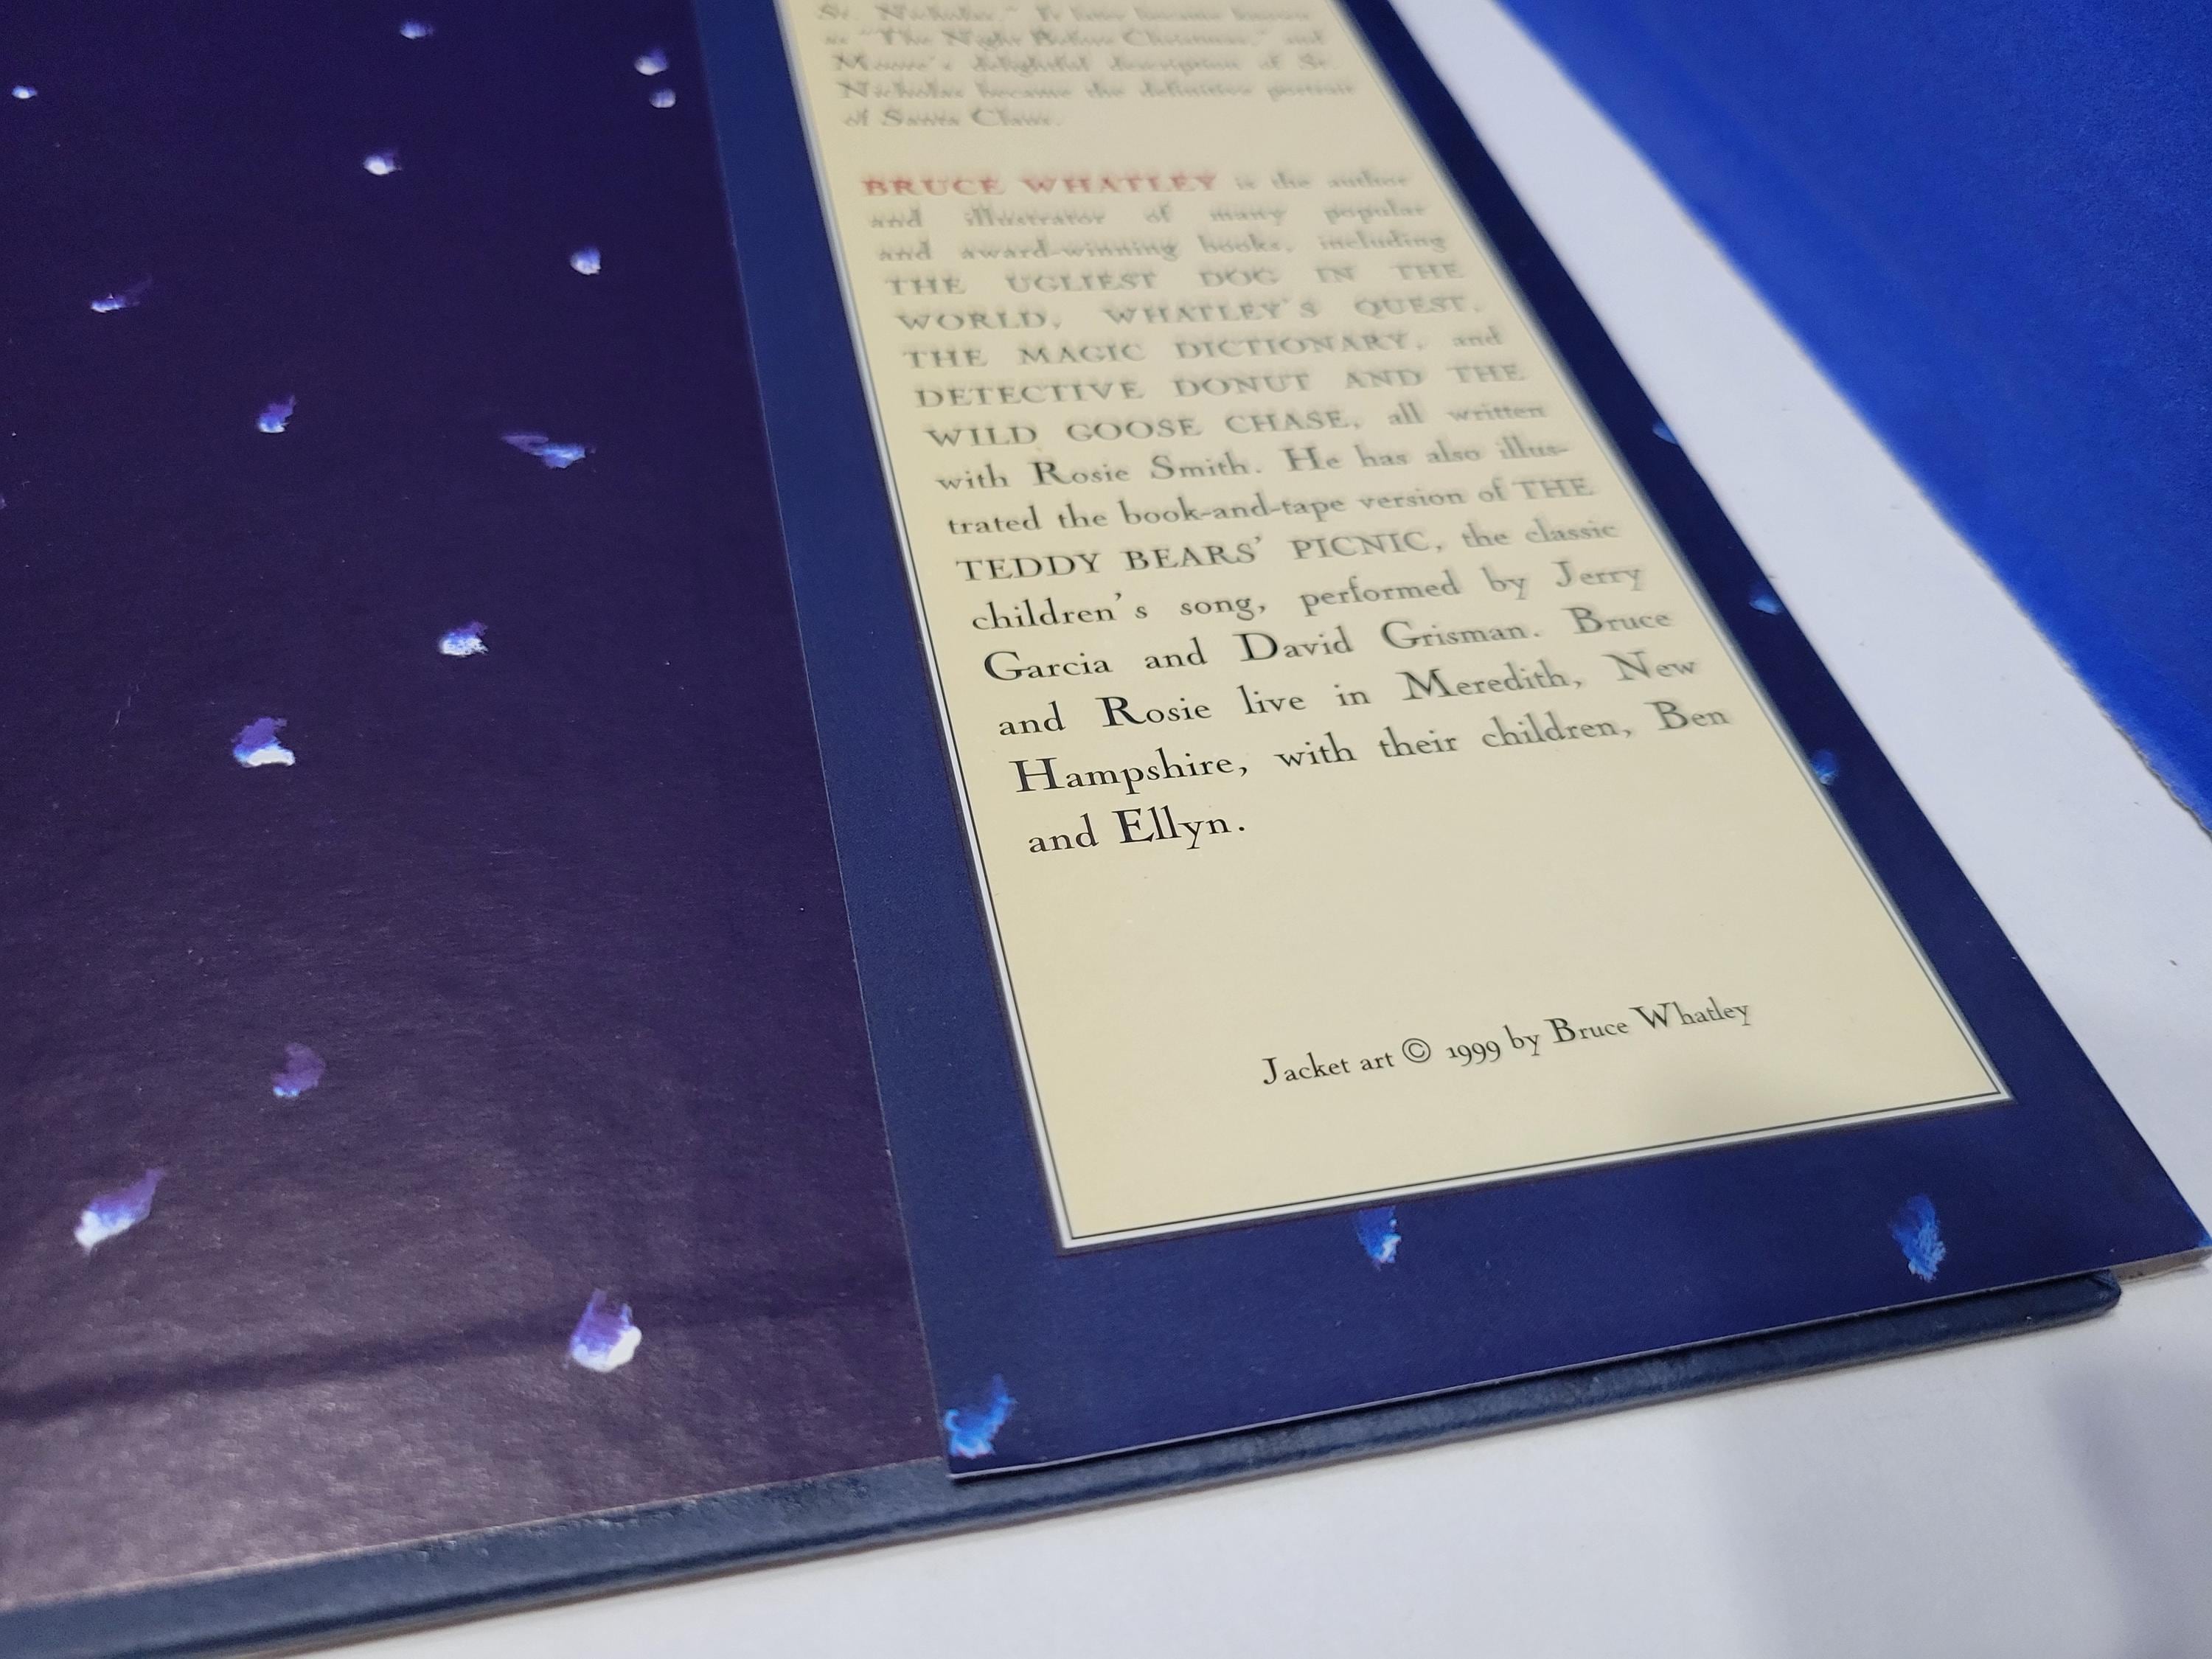 St. Nicholas." It later became known
as "The Night Before Christmas," and
Moore's delightful description of St.
Nicholas became the definitive portrait
of Santa Claus.
BRUCE WHATLEY is the author
and illustrator of many popular
and award-winning books, including
THE UGLIEST DOG IN THE
WORLD, WHATLEY'S QUEST,
THE MAGIC DICTIONARY, and
DETECTIVE DONUT AND THE
WILD GOOSE CHASE, all written
with Rosie Smith. He has also illus-
trated the book-and-tape version of THE
TEDDY BEARS' PICNIC, the classic
children's song, performed by Jerry
Garcia and David Grisman. Bruce
and Rosie live in Meredith, New
Hampshire, with their children, Ben
and Ellyn.
Jacket art © 1999 by Bruce Whatley